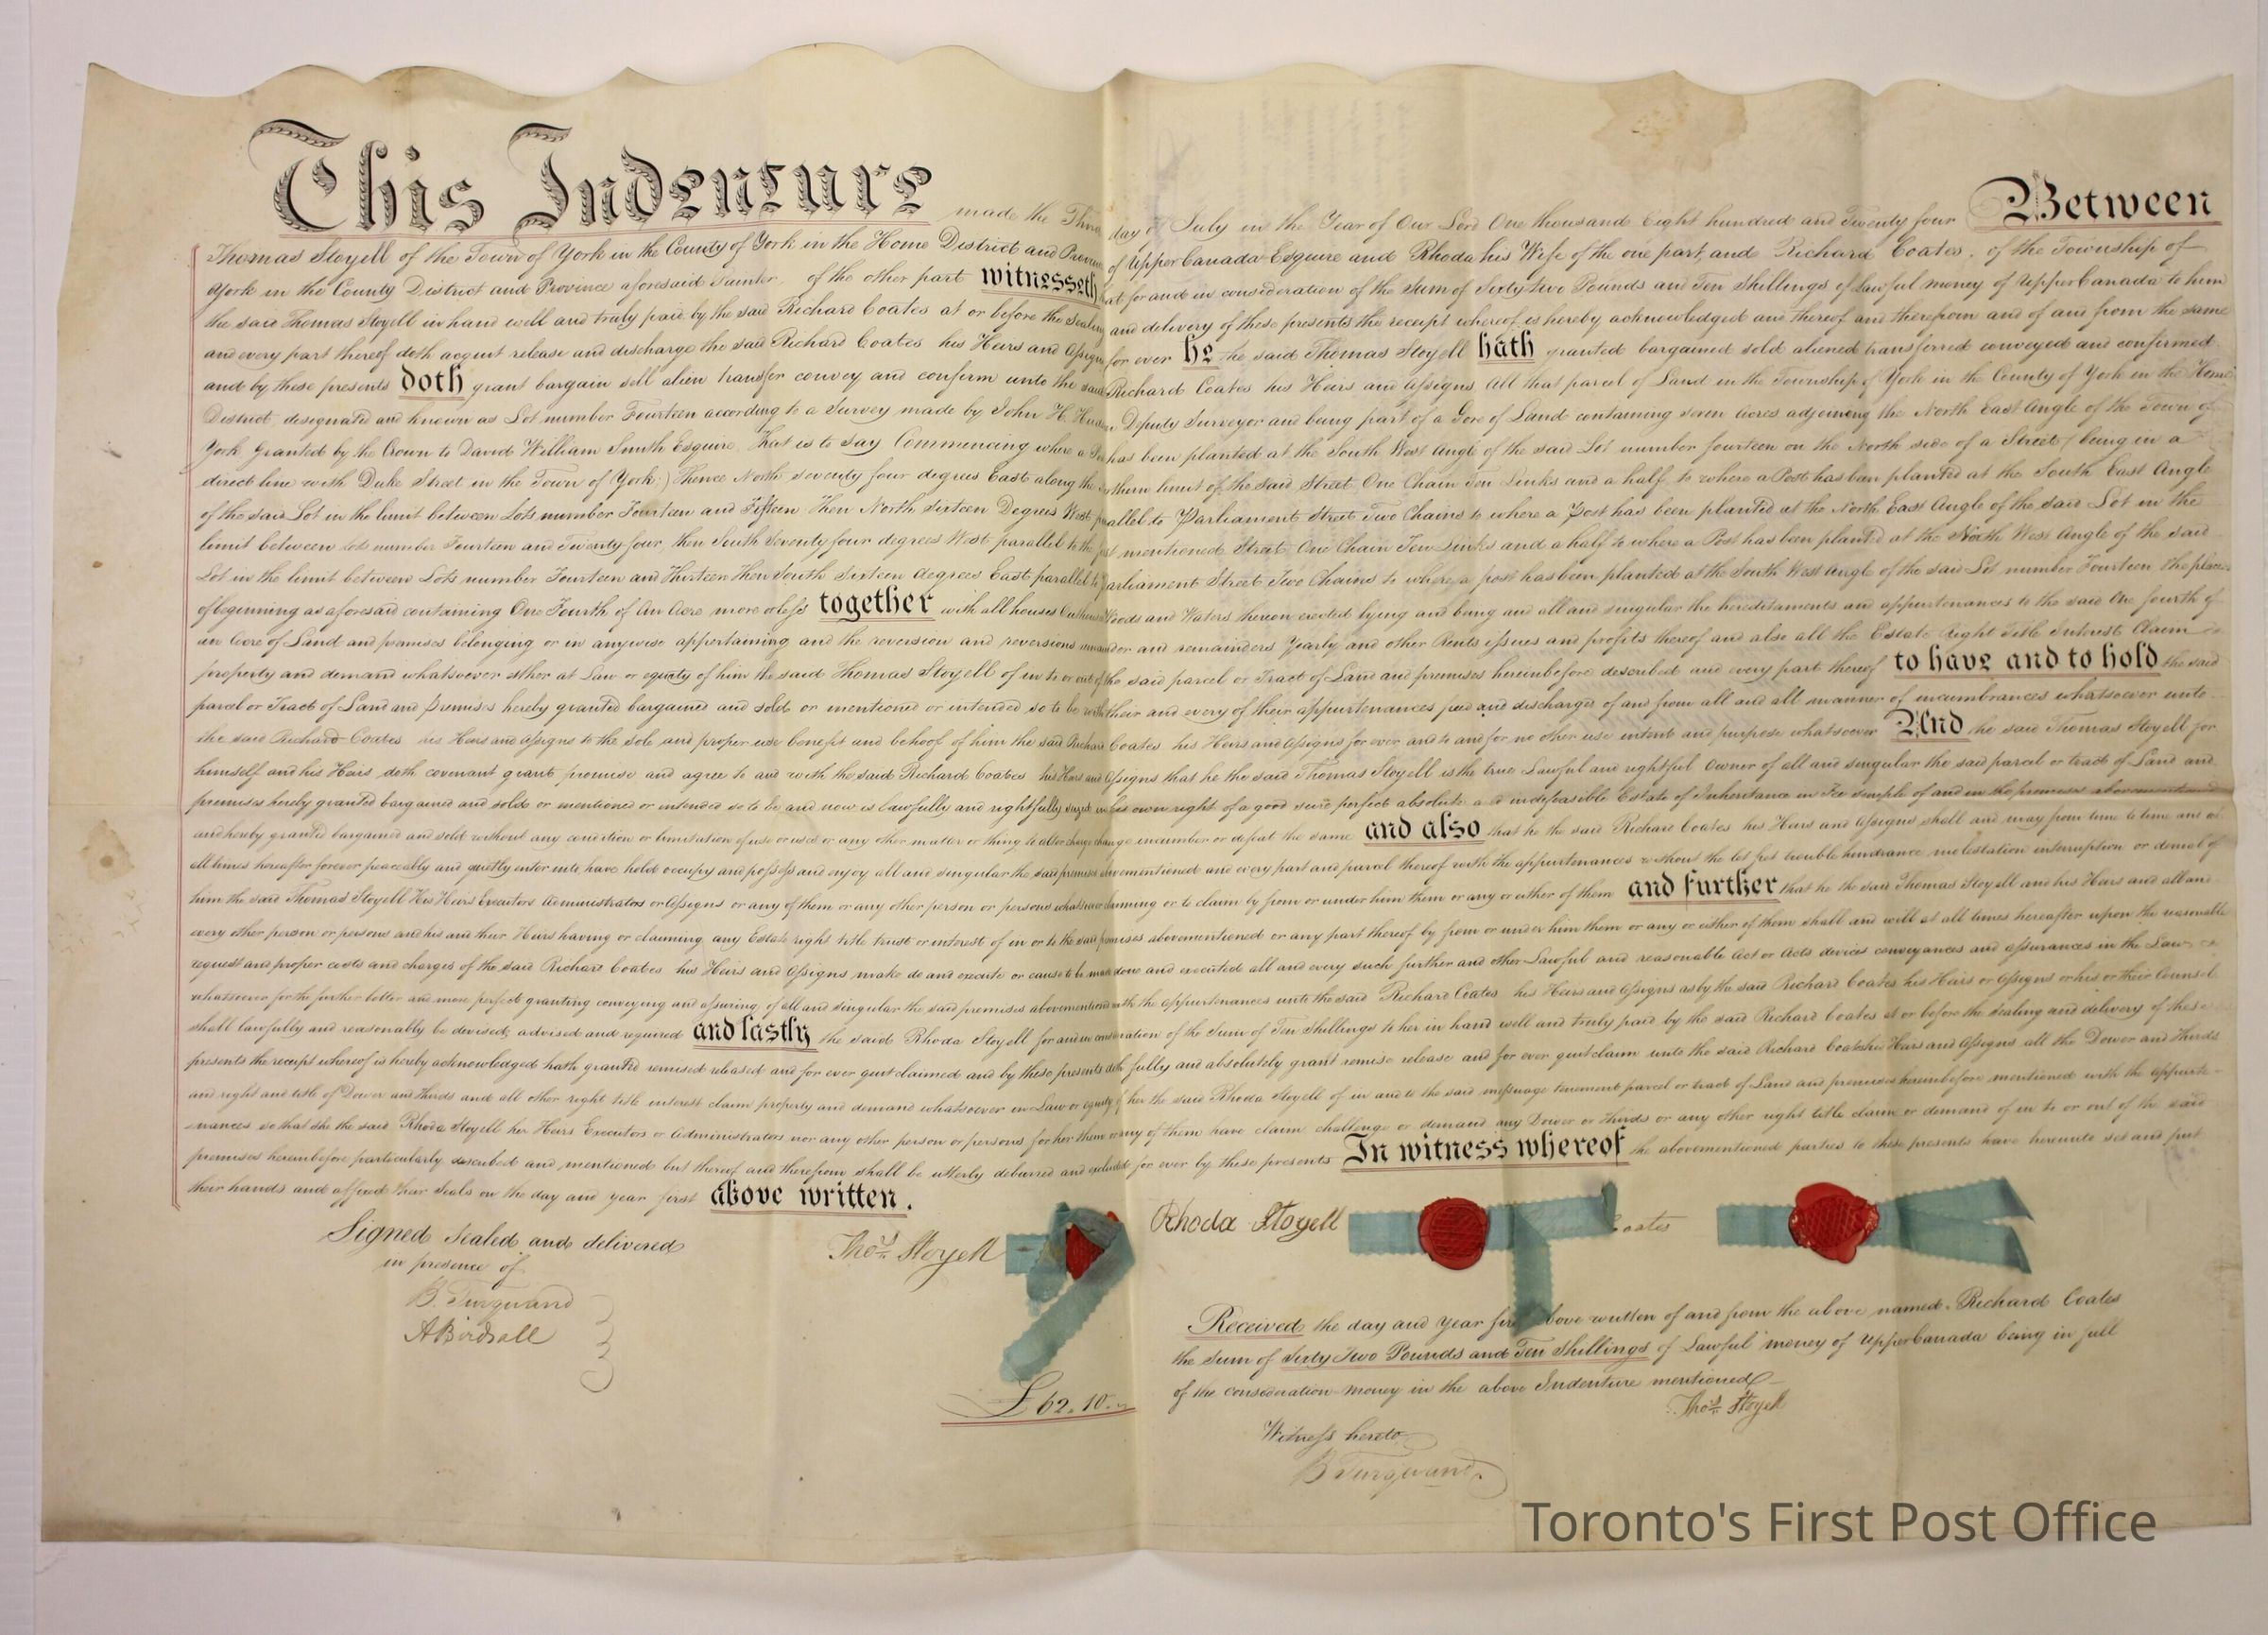 This Indenture made the day of July in the Year of Our Lord One thousand Eight hundred and Twenty four Between
Thomas Stoyell of the Town of York in the County of York in the Home District and Province of Upper Canada Esquire and Rhoda his Wife of the one part, and Richard Coates, of the Township of
York in the County District and Province aforesaid Painter, of the other part witnesseth that for and in consideration of the Sum of Sixty two Pounds and Ten Shillings of Lawful money of Upper Canada to him
the said Thomas Stoyell in hand well and truly paid by the said Richard Coates at or before the Sealing and delivery of these presents the receipt whereof is hereby acknowledged and thereof and therefrom and of and from the same
and every part thereof doth acquit release and discharge the said Richard Coates his Heirs and Assigns for ever he the said Thomas Stoyell hath granted bargained sold aliened transferred conveyed and confirmed
and by these presents doth grant bargain sell alien transfer convey and confirm unto the said Richard Coates his Heirs and Assigns, All that parcel of Land in the Township of York in the County of York in the Home
District designated and known as Lot number Fourteen according to a Survey made by John H. Deputy Surveyor and being part of a Gore of Land containing seven Acres adjoining the North East Angle of the Town of
York Granted by the Crown to David William Smith Esquire, That is to say Commencing where a has been planted at the South West Angle of the said Lot number fourteen on the North side of a Street (being in a
direct line with Duke Street in the Town of York) Thence North seventy four degrees East along the northern limit of the said Street One Chain Ten Links and a half, to where a Post has been planted at the South East Angle
of the said Lot in the limit between Lots number Fourteen and Fifteen Then North sixteen Degrees West parallel to Parliament Street Two Chains to where a Post has been planted at the North East Angle of the said Lot in the
limit between lots number Fourteen and Twenty four, then South Seventy four degrees West parallel to the first mentioned Street One Chain Ten Links and a half to where a Post has been planted at the North West Angle of the said
Lot in the limit between Lots number Fourteen and Thirteen Then South Sixteen degrees East parallel to Parliament Street Two Chains to where a post has been planted at the South West Angle of the said Lot number Fourteen the place
of beginning as aforesaid containing One Fourth of An Acre more or less together with all houses Woods and Waters thereon erected lying and being and all and singular the hereditaments and appurtenances to the said One fourth of
an Acre of Land and premises belonging or in anywise appertaining and the reversion and reversions remainder and remainders Yearly and other Rents issues and profits thereof and also all the Estate Right Title Interest Claim
property and demand whatsoever either at Law or equity of him the said Thomas Stoyell of in to or out of the said parcel or Tract of Land and premises hereinbefore described and every part thereof to have and to hold the said
parcel or Tract of Land and Premises hereby granted bargained and sold or mentioned or intended so to be with their and every of their appurtenances freed and discharged of and from all and all manner of incumbrances whatsoever unto
the said Richard Coates his Heirs and Assigns to the sole and proper use benefit and behoof of him the said Richard Coates his Heirs and Assigns for ever and to and for no other use intent and purpose whatsoever And he said Thomas Stoyell for
himself and his Heirs doth covenant grant promise and agree to and with the said Richard Coates his Heirs and Assigns that he the said Thomas Stoyell is the true Lawful and rightful Owner of all and singular the said parcel or tract of Land and
premises hereby granted bargained and sold or mentioned or intended so to be and now is lawfully and rightfully seized in his own right of a good sure perfect absolute and indefeasible Estate of Inheritance in Fee simple of and in the premises abovementioned
and hereby granted bargained and sold without any condition or limitation of use or uses or any other matter or thing to alter charge change incumber or defeat the same and also that he the said Richard Coates his Heirs and Assigns shall and may from time to time and at
all times hereafter forever peaceably and quietly enter into have hold occupy and possess and enjoy all and singular the said premises abovementioned and every part and parcel thereof with the appurtenances without the let trouble hindrance molestation interruption or denial of
him the said Thomas Stoyell His Heirs Executors Administrators or Assigns or any of them or any other person or persons whatsoever claiming or to claim by from or under him them or any or either of them and further that he the said Thomas Stoyell and his Heirs and all and
every other person or persons and his and their Heirs having or claiming any Estate right title trust or interest of in or to the said premises abovementioned or any part thereof by from or under him them or any or either of them shall and will at all times hereafter upon the reasonable
request and proper costs and charges of the said Richard Coates his Heirs and Assigns make do and execute or cause to be made done and executed all and every such further and other Lawful and reasonable Act or Acts devices conveyances and assurances in the Law
whatsoever for the further better and more perfect granting conveying and assuring of all and singular the said premises abovementioned with the appurtenances unto the said Richard Coates his Heirs and Assigns as by the said Richard Coates his Heirs or Assigns or his or their Counsel
shall lawfully and reasonably be devised, advised and required and lastly the said Rhoda Stoyell for and in consideration of the Sum of Ten Shillings to her in hand well and truly paid by the said Richard Coates at or before the sealing and delivery of these
presents the receipt whereof is hereby acknowledged hath granted remised released and for ever quit claimed and by these presents doth fully and absolutely grant remise release and for ever quit claim unto the said Richard Coates his Heirs and Assigns all the Dower and thirds
and right and title of Dower and thirds and all other right title interest claim property and demand whatsoever in Law or equity of her the said Rhoda Stoyell of in and to the said messuage tenement parcel or tract of Land and premises hereinbefore mentioned with the appurte-
nances so that she the said Rhoda Stoyell her Heirs Executors or Administrators nor any other person or persons for her them or any of them have claim challenge or demand any Dower or thirds or any other right title claim or demand of in to or out of the said
premises hereinbefore particularly described and mentioned but thereof and therefrom shall be utterly debarred and excluded for ever by these presents In witness whereof the abovementioned parties to these presents have hereunto set and put
their hands and affixed their Seals on the day and year first above written.
Signed Sealed and delivered
in presence of
B. Turquand
A Birdsall
Thos. Stoyell
Rhoda Stoyell
Coates
£62.10.
Received the day and year first above written of and from the above named Richard Coates
the Sum of Sixty Two Pounds and Ten Shillings of Lawful money of Upper Canada being in full
of the consideration money in the above Indenture mentioned
Thos. Stoyell
Witness hereto
B Turquand
Toronto's First Post Office